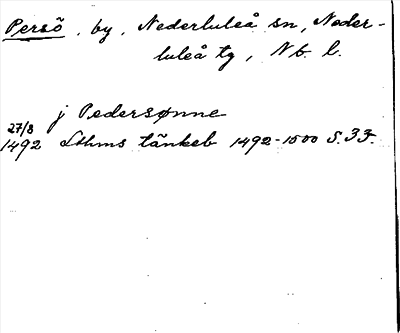 Persö, by, Nederluleå sn, Neder-
luleå tg, Nb. l.
j Pedersønne
27/8
1492 Sthms tänkeb 1492-1500 S. 33.